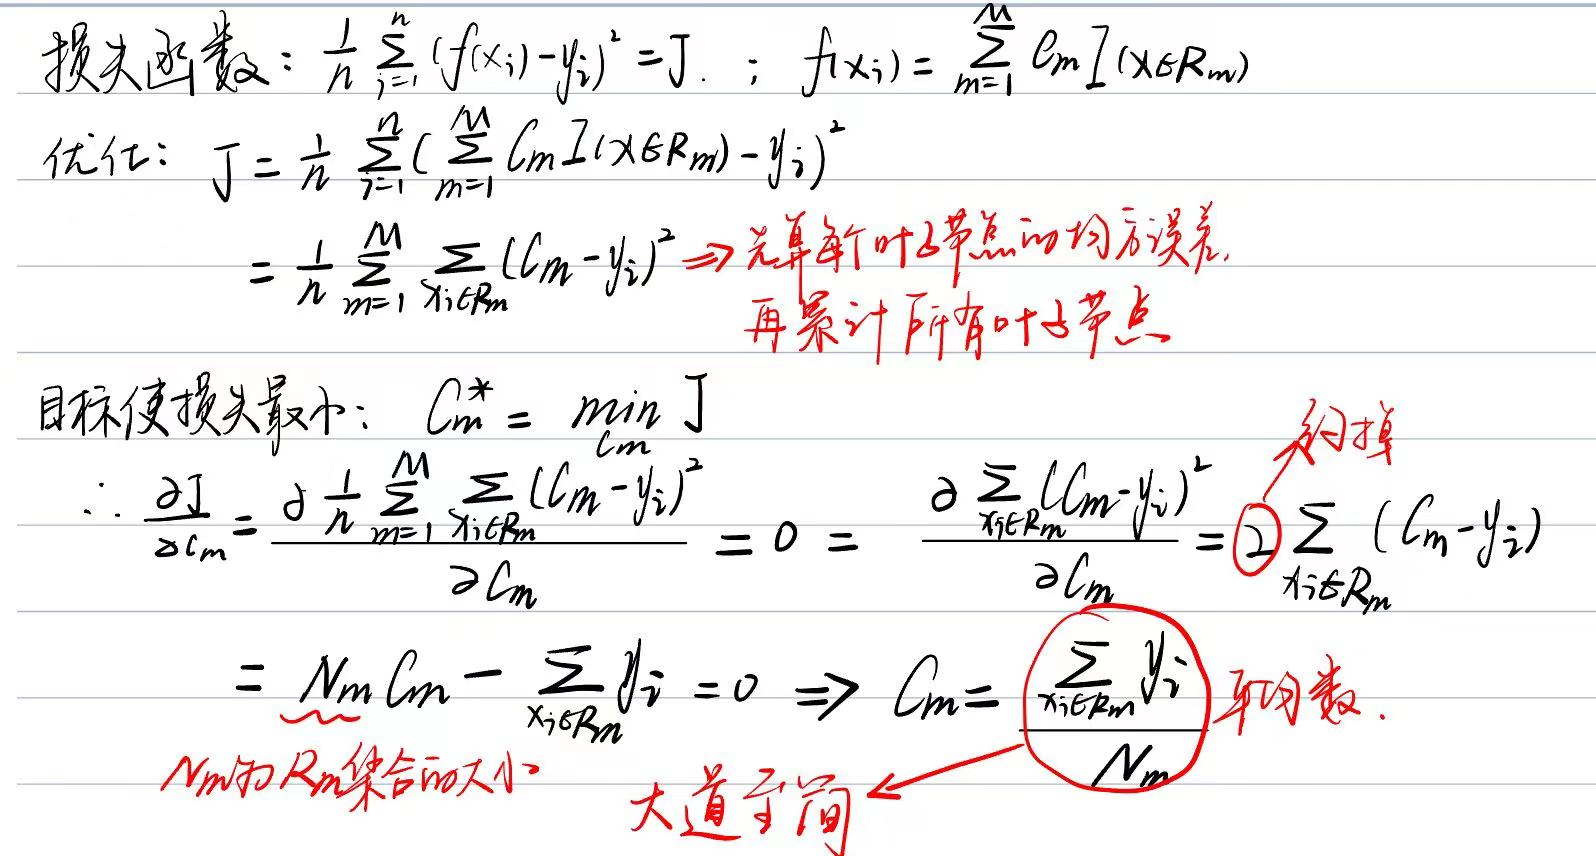 损失函数: 1/n ∑_{i=1}^{n} (f(x_i)-y_i)² = J. ; f(x_i) = ∑_{m=1}^{M} C_m I(x∈R_m)
优化: J = 1/n ∑_{i=1}^{n} (∑_{m=1}^{M} C_m I(x∈R_m) - y_i)²
= 1/n ∑_{m=1}^{M} ∑_{x_i∈R_m} (C_m - y_i)² ⇒ 先算每个叶子节点的均方误差,
再累计所有叶子节点
目标使损失最小: C_m^* = min_{C_m} J
约掉
∴ ∂J/∂C_m = ∂ 1/n ∑_{m=1}^{M} ∑_{x_i∈R_m} (C_m - y_i)² / ∂C_m = 0 = ∂ ∑_{x_i∈R_m} (C_m - y_i)² / ∂C_m = 2 ∑_{x_i∈R_m} (C_m - y_i)
= N_m C_m - ∑_{x_i∈R_m} y_i = 0 ⇒ C_m = ∑_{x_i∈R_m} y_i / N_m 平均数.
N_m为R_m集合的大小
大道至简